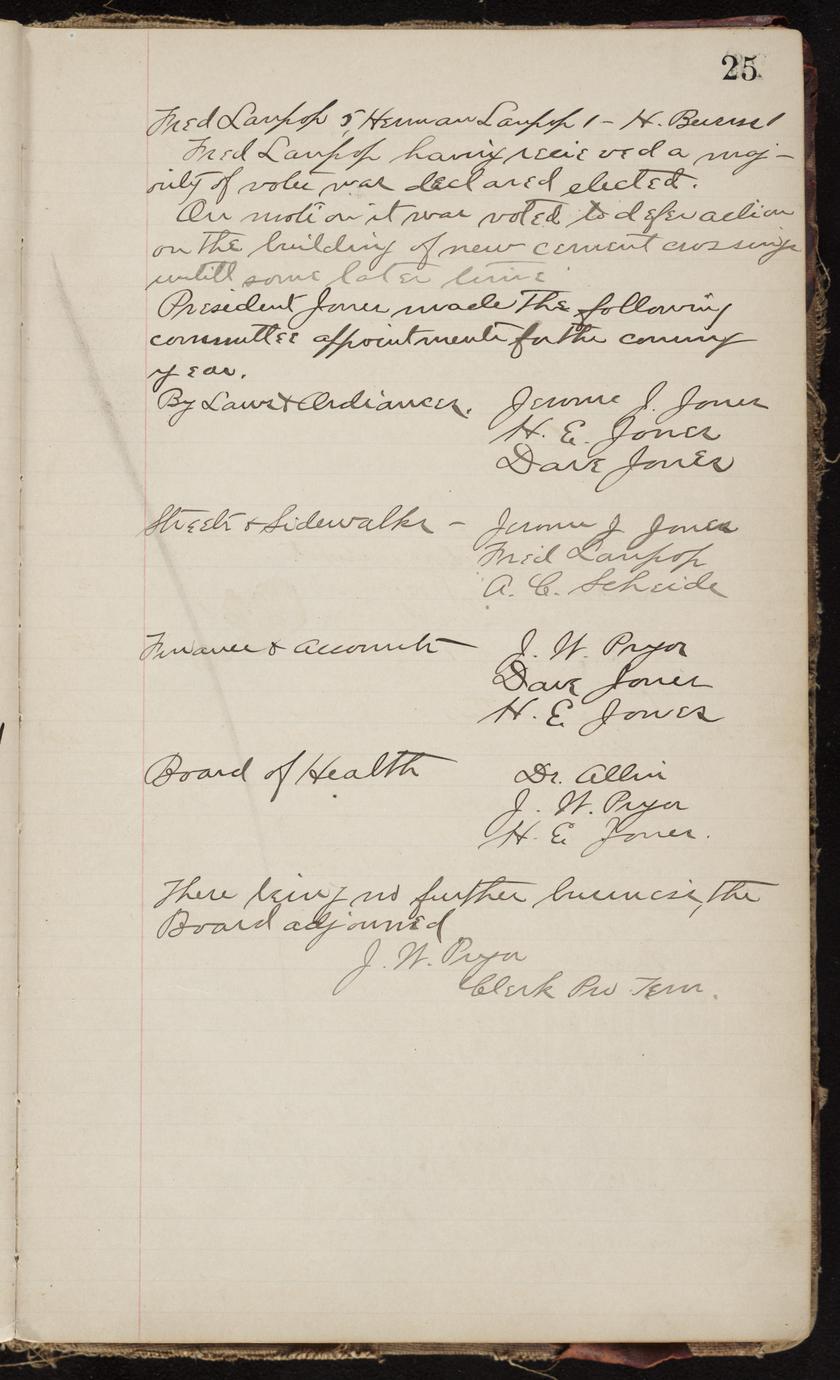 25
Fred Laupop 5, Herman Laupop 1 - H. Burns 1
Fred Laupop having recieved a maj-
ority of votes was declared elected.
On motion it was voted to defer action
on the building of new cement crossings
untill some later time.
President Jones made the following
committee appointments for the coming
year.
By Laws & Ordiances. Jerome J. Jones
H. E. Jones
Dave Jones
Streets & Sidewalks - Jerome J Jones
Fred Laupop
A. C. Scheide
Finance & Accounts - J. W. Pryor
Dave Jones
H. E Jones
Board of Health Dr. Allin
J. W. Pryor
H. E Jones.
There being no further business, the
Board adjourned
J. W. Pryor
Clerk Pro Tem.